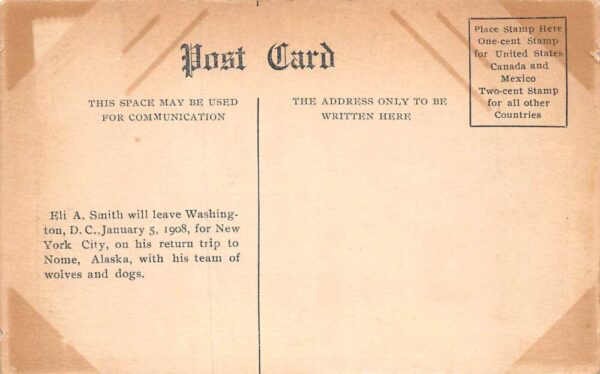 Post Card
Place Stamp Here
One-cent Stamp
for United States
Canada and
Mexico
Two-cent Stamp
for all other
Countries
THIS SPACE MAY BE USED
FOR COMMUNICATION
THE ADDRESS ONLY TO BE
WRITTEN HERE
Eli A. Smith will leave Washing-
ton, D. C., January 5, 1908, for New
York City, on his return trip to
Nome, Alaska, with his team of
wolves and dogs.